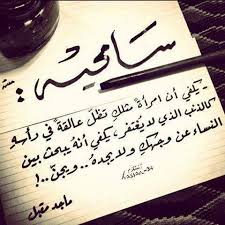 سامحيه :
- يكفي أن امرأةً مثلكِ تظلّ عالقةً في رأسهِ
كالذنب الذي لا يُغتفر، يكفي أنهُ يبحث بين
النساء عن وجهكِ ولا يجدهُ.. ويجنّ..!
ماجد مقبل